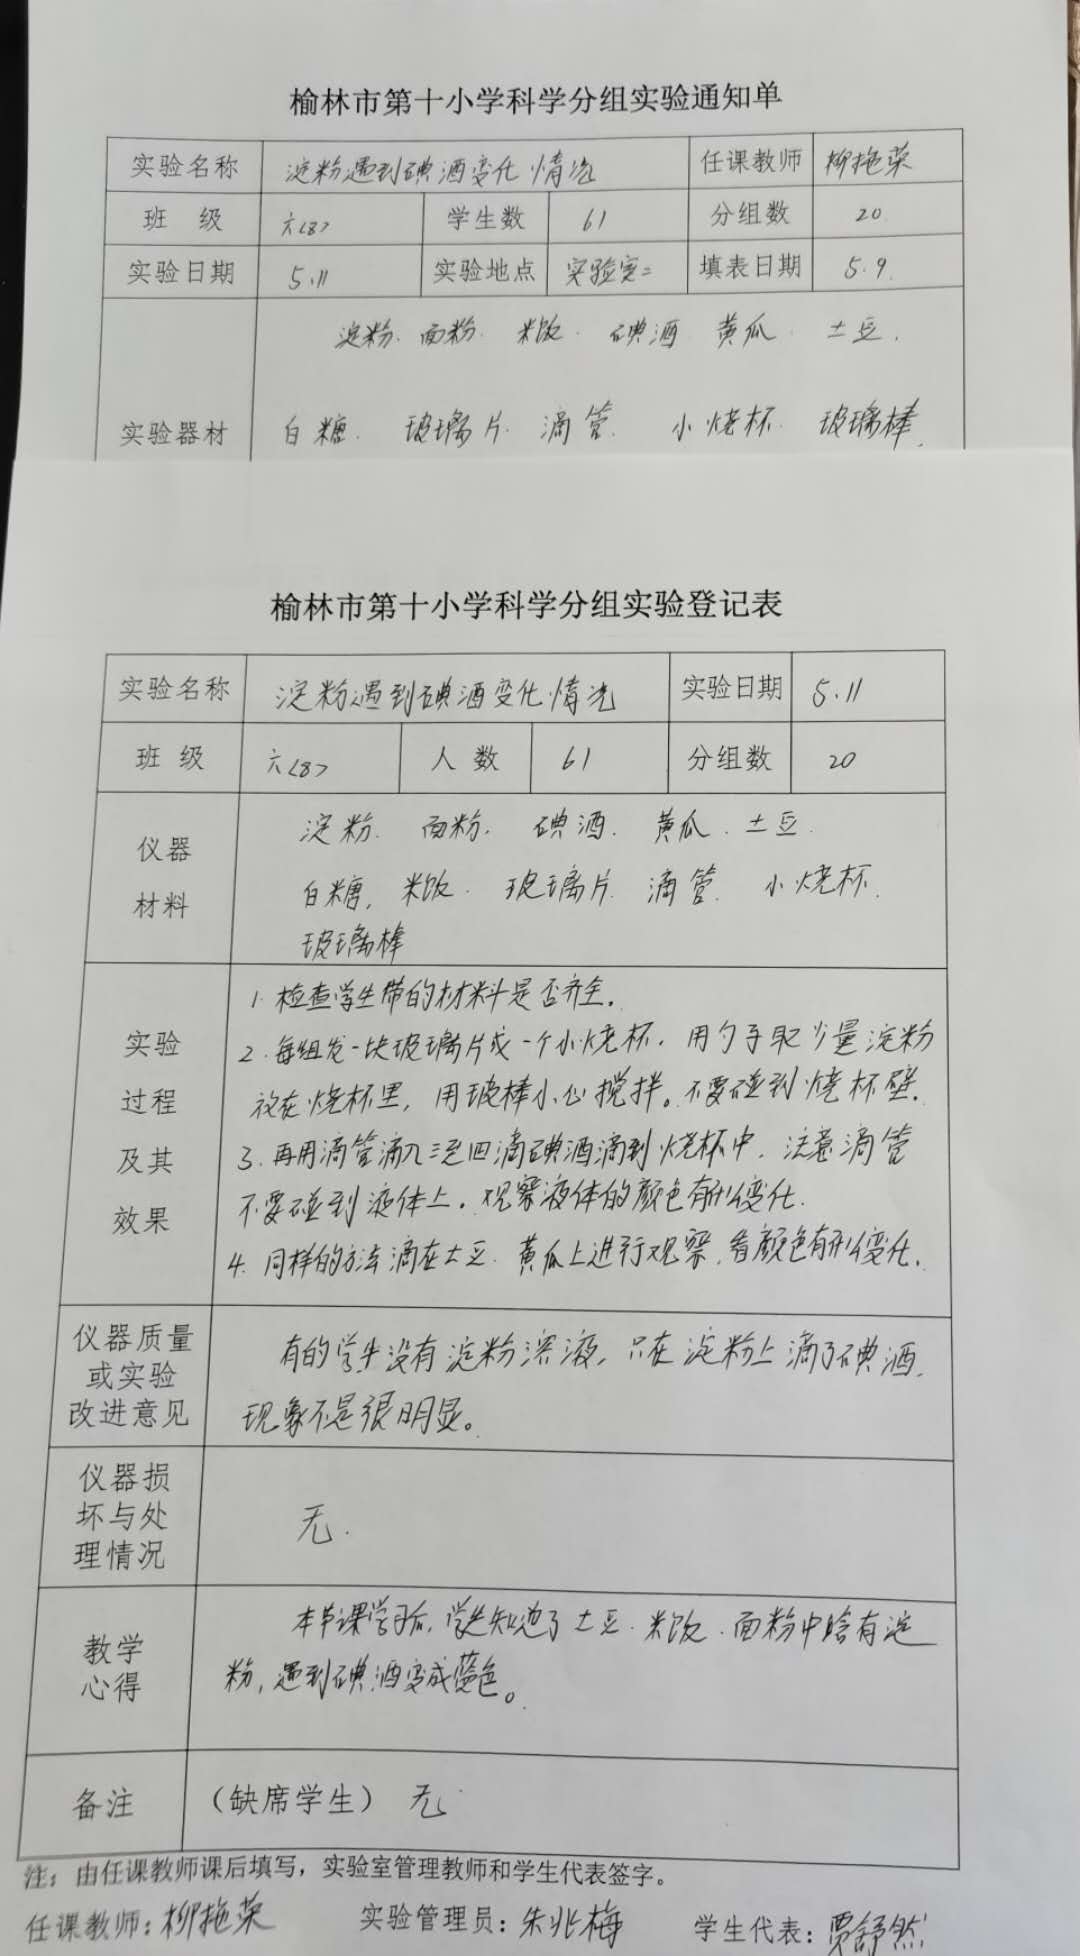 榆林市第十小学科学分组实验通知单
实验名称 淀粉遇到碘酒变化情况 任课教师 柳拖荣
班 级 六<8> 学生数 61 分组数 20
实验日期 5.11 实验地点 实验室二 填表日期 5.9
淀粉. 面粉. 米饭. 碘酒. 黄瓜. 土豆.
实验器材 白糖. 玻璃片. 滴管. 小烧杯. 玻璃棒.
榆林市第十小学科学分组实验登记表
实验名称 淀粉遇到碘酒变化情况 实验日期 5.11
班 级 六<8> 人 数 61 分组数 20
仪器
材料
淀粉. 面粉. 碘酒. 黄瓜. 土豆.
白糖, 米饭. 玻璃片. 滴管. 小烧杯.
玻璃棒
实验
过程
及其
效果
1. 检查学生带的材料是否齐全.
2. 每组发一块玻璃片或一个小烧杯. 用勺子取少量淀粉
放在烧杯里, 用玻棒小心搅拌。不要碰到烧杯壁.
3. 再用滴管滴入三至四滴碘酒滴到烧杯中. 注意滴管
不要碰到液体上. 观察液体的颜色有什么变化.
4. 同样的方法滴在土豆. 黄瓜上进行观察, 看颜色有什么变化.
仪器质量
或实验
改进意见
有的学生没有淀粉溶液, 只在淀粉上滴了碘酒.
现象不是很明显。
仪器损
坏与处
理情况
无.
教学
心得
本节课学习后, 学生知道了土豆. 米饭. 面粉中含有淀
粉, 遇到碘酒变成蓝色。
备注 （缺席学生） 无.
注：由任课教师课后填写，实验室管理教师和学生代表签字。
任课教师：柳拖荣 实验管理员：朱兆梅 学生代表：贾舒然